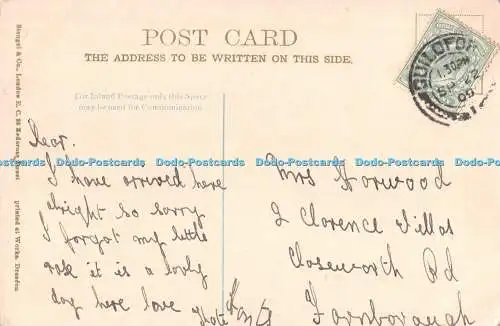 POST CARD
THE ADDRESS TO BE WRITTEN ON THIS SIDE.
For Inland Postage only this Space
may be used for Communication.
Stengel & Co., London E. C. 39 Redcross Street
printed at Works, Dresden
GUILDFORD
1.30PM
SP 22
09
Dear.
I have arrived here
alright so sorry
I forgot my little
it is a lovely
day here love
Mrs Norwood
2 Clarence Villas
Closeworth Rd
Farnborough
Hants
Dodo-Postcards Dodo-Postcards Dodo-Postcards Dodo-Postcards Dodo-Postcards